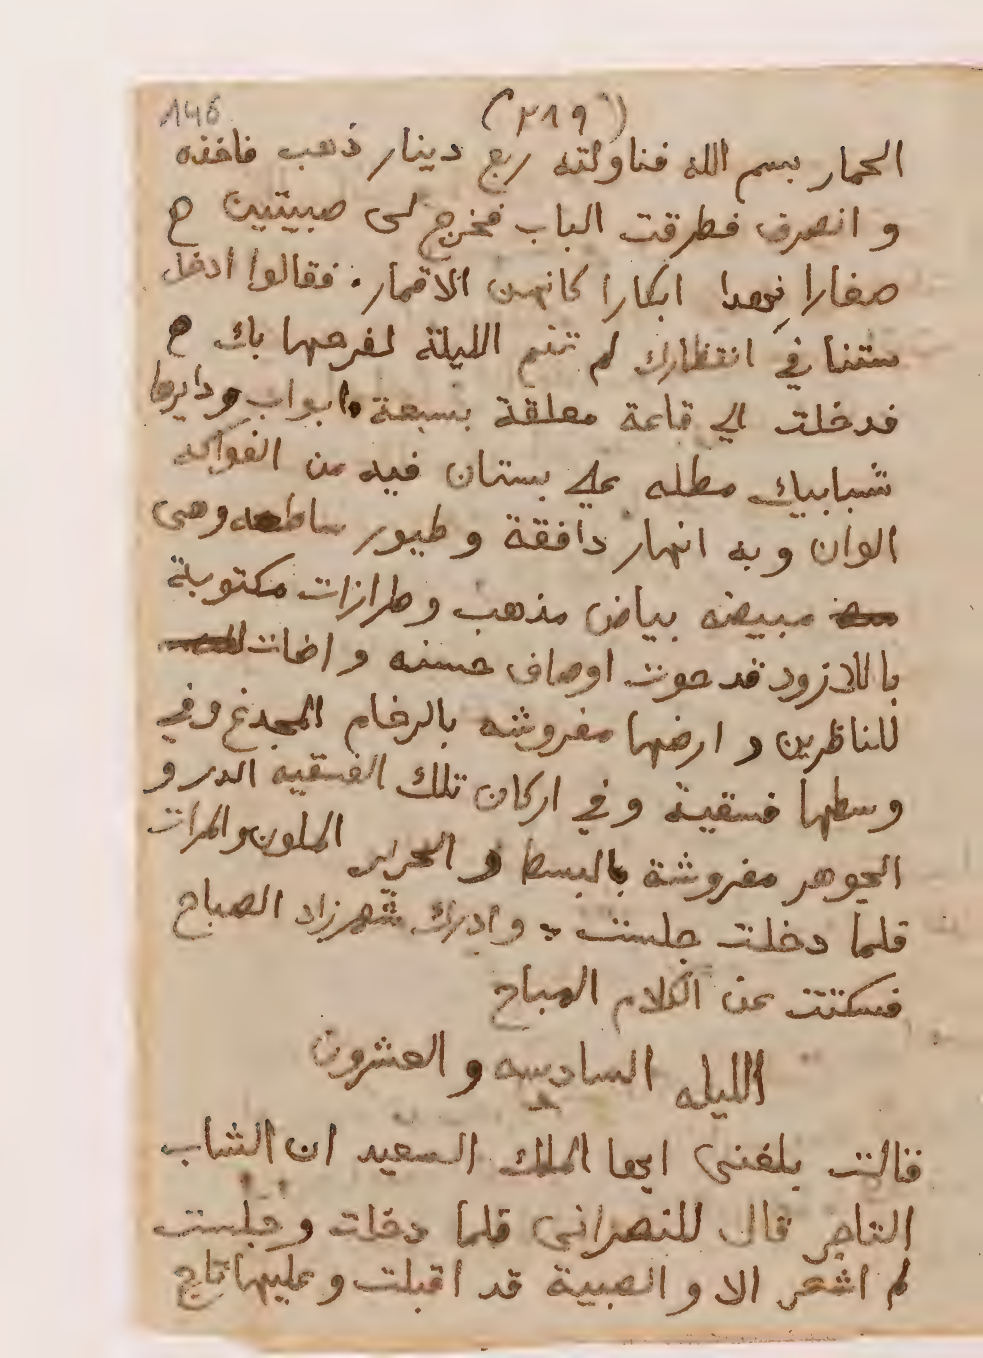 146 (٢١٩)
الحمار بسم الله فناولته ربع دينار ذهب فاخذه
و انصرف فطرقت الباب فخرج لى صبيتين
صغارا نهدا ابكارا كانهن الاقمار . فقالوا ادخل
ستنا في انتظارك لم تنم الليلة لفرحها بك
فدخلت الي قاعة معلقة بسبعة ابواب ودايرها
شبابيك مطله علي بستان فيه من الفواكه
الوان و به انهار دافقة و طيور وهى
مبيضه بياض مذهب و طرازات مكتوبة
باللازورد قد حوت اوصاف حسنه و اضات
للناظرين و ارضها مفروشه بالرخام المجدع وفي
وسطها فسقية و في اركان تلك الفسقيه الدر و
الجوهر مفروشة بالبسط و الحرير الملون والمرات
فلما دخلت جلست وادرك شهرزاد الصباح
فسكتت عن الكلام المباح
الليله السادسه و العشرون
قالت بلغنى ايها الملك السعيد ان الشاب
التاجر قال للنصرانى فلما دخلت و جلست
لم اشعر الا و الصبية قد اقبلت و عليها تاج